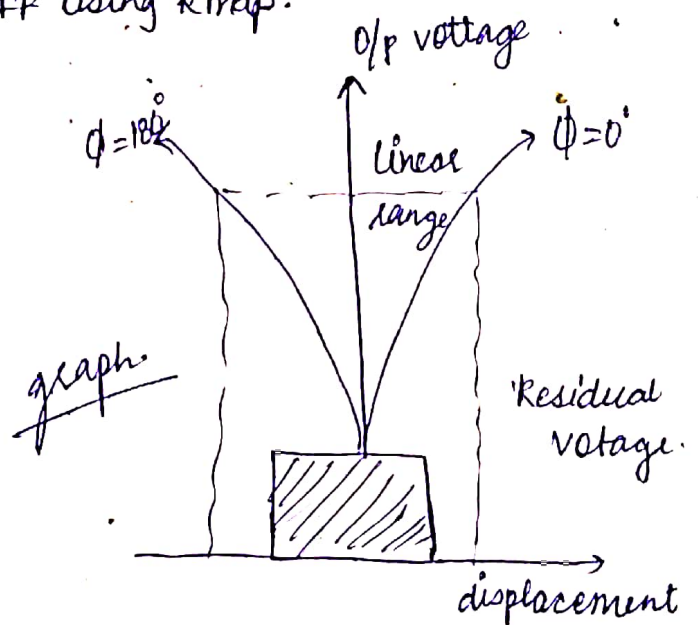 using
O/p vottage
ϕ=180°
ϕ=0°
linear
range
graph.
Residual
Votage.
displacement